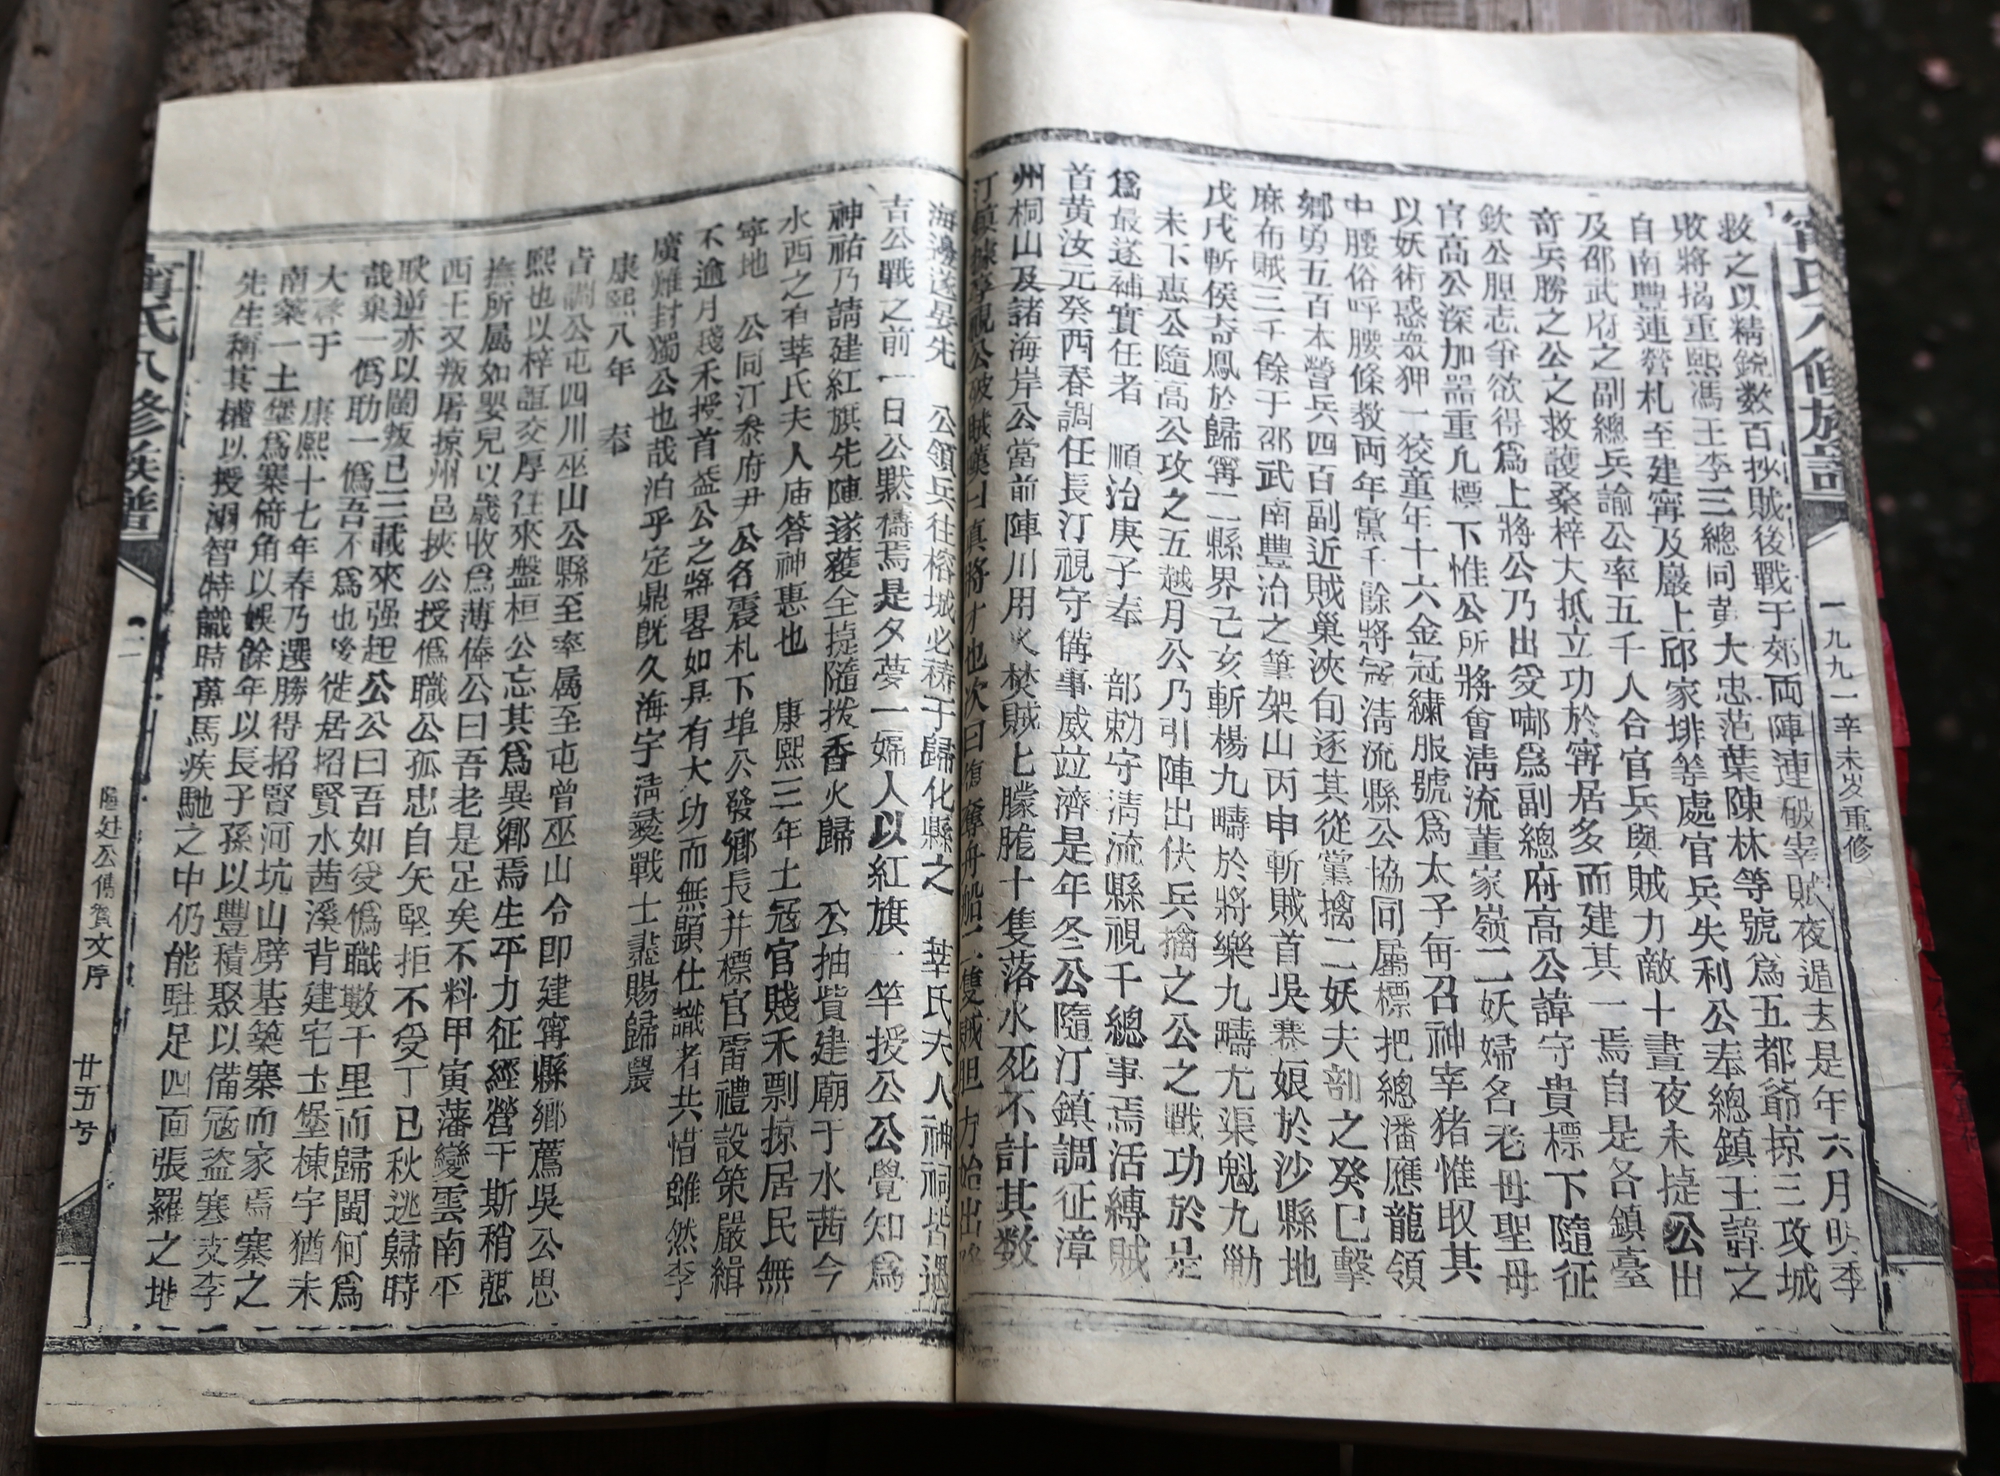 一九九一辛未岁重修
救之以精銳数百抄賊後戰于郊両陣連破宰賊夜遁去是年六月明季
敗將揭重熙馮王李三總同黃大忠范葉陳林等號爲五都爺掠三攻城
自南豐連營札至建寧及巖上邱家排等處官兵失利公奉總鎮王諱之
及邵武府之副總兵諭公率五千人合官兵與賊力敵十晝夜未捷公出
奇兵勝之公之救護桑梓大抵立功於寧居多而建其一焉自是各鎮臺
欽公胆志爭欲得爲上將公乃出受嘟爲副總府高公諱守貴標下隨征
官高公深加噐重凢標下惟公所將會淸流董家嶺二妖婦名老母聖母
以妖術惑眾狎一狡童年十六金冠繡服號爲太子每召神宰猪惟取其
中腰俗呼腰條教両年黨千餘將寇淸流縣公協同屬標把總潘應龍領
鄉勇五百本營兵四百副近賊巢浹旬逐其從黨擒二妖夫剖之癸巳擊
麻布賊三千餘于邵武南豐治之筆架山丙申斬賊首吳寨娘於沙縣地
戊戌斬侯奇鳳於歸寧二縣界己亥斬楊九疇於將樂九疇尤渠魁九勦
未下惠公隨高公攻之五越月公乃引陣出伏兵擒之公之戰功於是
爲最遂補實任者　順治庚子奉　部勅守淸流縣視千總事焉活縛賊
首黄汝元癸酉春調任長汀視守偹事威竝濟是年冬公隨汀鎮調征漳
州桐山及諸海岸公當前陣川用火焚賊七艨艟十隻落水死不計其数
汀鎮據高視公破賊嘆曰真將才也次日復奪舟船二隻賊胆方始出
海邊遂晏先　公領兵往榕城必禱于歸化縣之　莘氏夫人神祠皆遇
吉公戰之前一日公默禱焉是夕夢一婦人以紅旗一竿授公公覺知爲
神祐乃請建紅旗先陣遂獲全捷隨撥香火歸　公抽貲建廟于水茜今
水西之有莘氏夫人庙答神惠也　康熙三年土冦官賤禾剽掠居民無
寧地　公同汀叅府尹公各震札下埠公發鄉長并標官雷禮設策嚴緝
不逾月殘禾授首益公之將畧如具有大功而無顕仕識者共惜雖然李
廣難封獨公也哉泊乎定鼎旣久海宇淸夔戰士盡賜歸農
康熙八年　奉
旨調公屯四川巫山公縣至率属至屯曾巫山令卽建寧縣鄉薦吳公思
熙也以梓誼交厚往來盤桓公忘其爲異鄉焉生平力征經營干斯稍憇
撫所属如嬰兒以歲收爲薄俸公曰吾老是足矣不料甲寅藩變雲南平
西王又叛屠掠州邑挾公授僞職公孤忠自矢堅拒不受丁巳秋逃歸時
耿逆亦以閩叛已三載來强起公公曰吾如受僞職數千里而歸閩何爲
哉棄一僞助一僞吾不爲也後徙居招賢水茜溪背建宅土堡棟宇猶未
大　于　康熙十七年春乃選勝得招賢河坑山劈基築寨而家焉寨之
南築一土堡爲寨犄角以娛餘年以長子孫以豐積聚以備冦盜寒支李
先生稱其權以授溺智特識時萬馬疾馳之中仍能駐足四面張羅之地
甯氏八修族譜
二
文序
廿五号